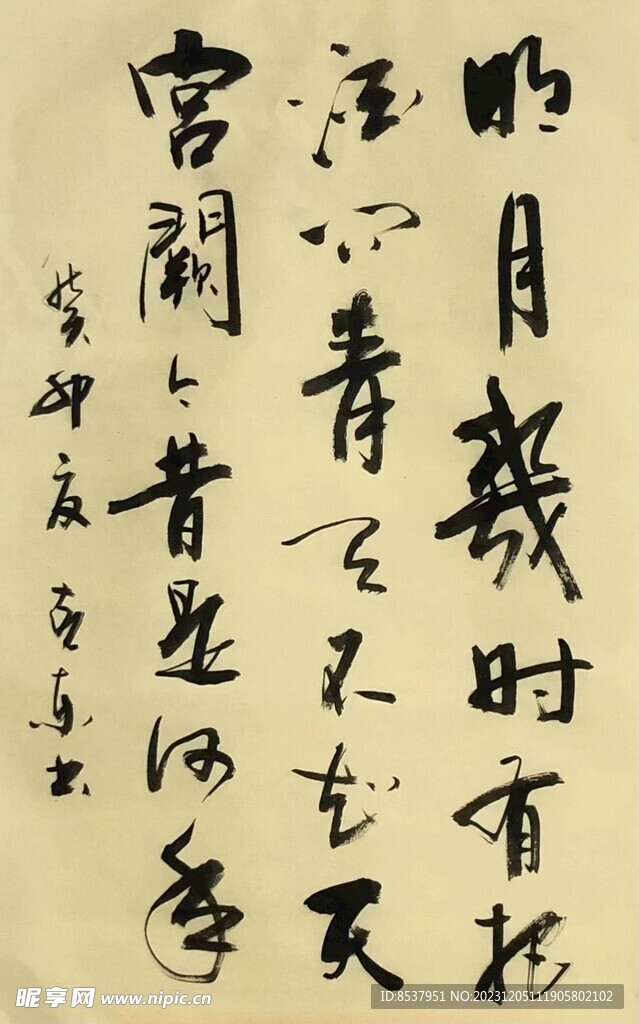 明月幾时有把
酒问青天不知天
宫阙今昔是何年
癸卯夏东书
昵享网 www.nipic.cn
ID:8537951 NO:20231205111905802102